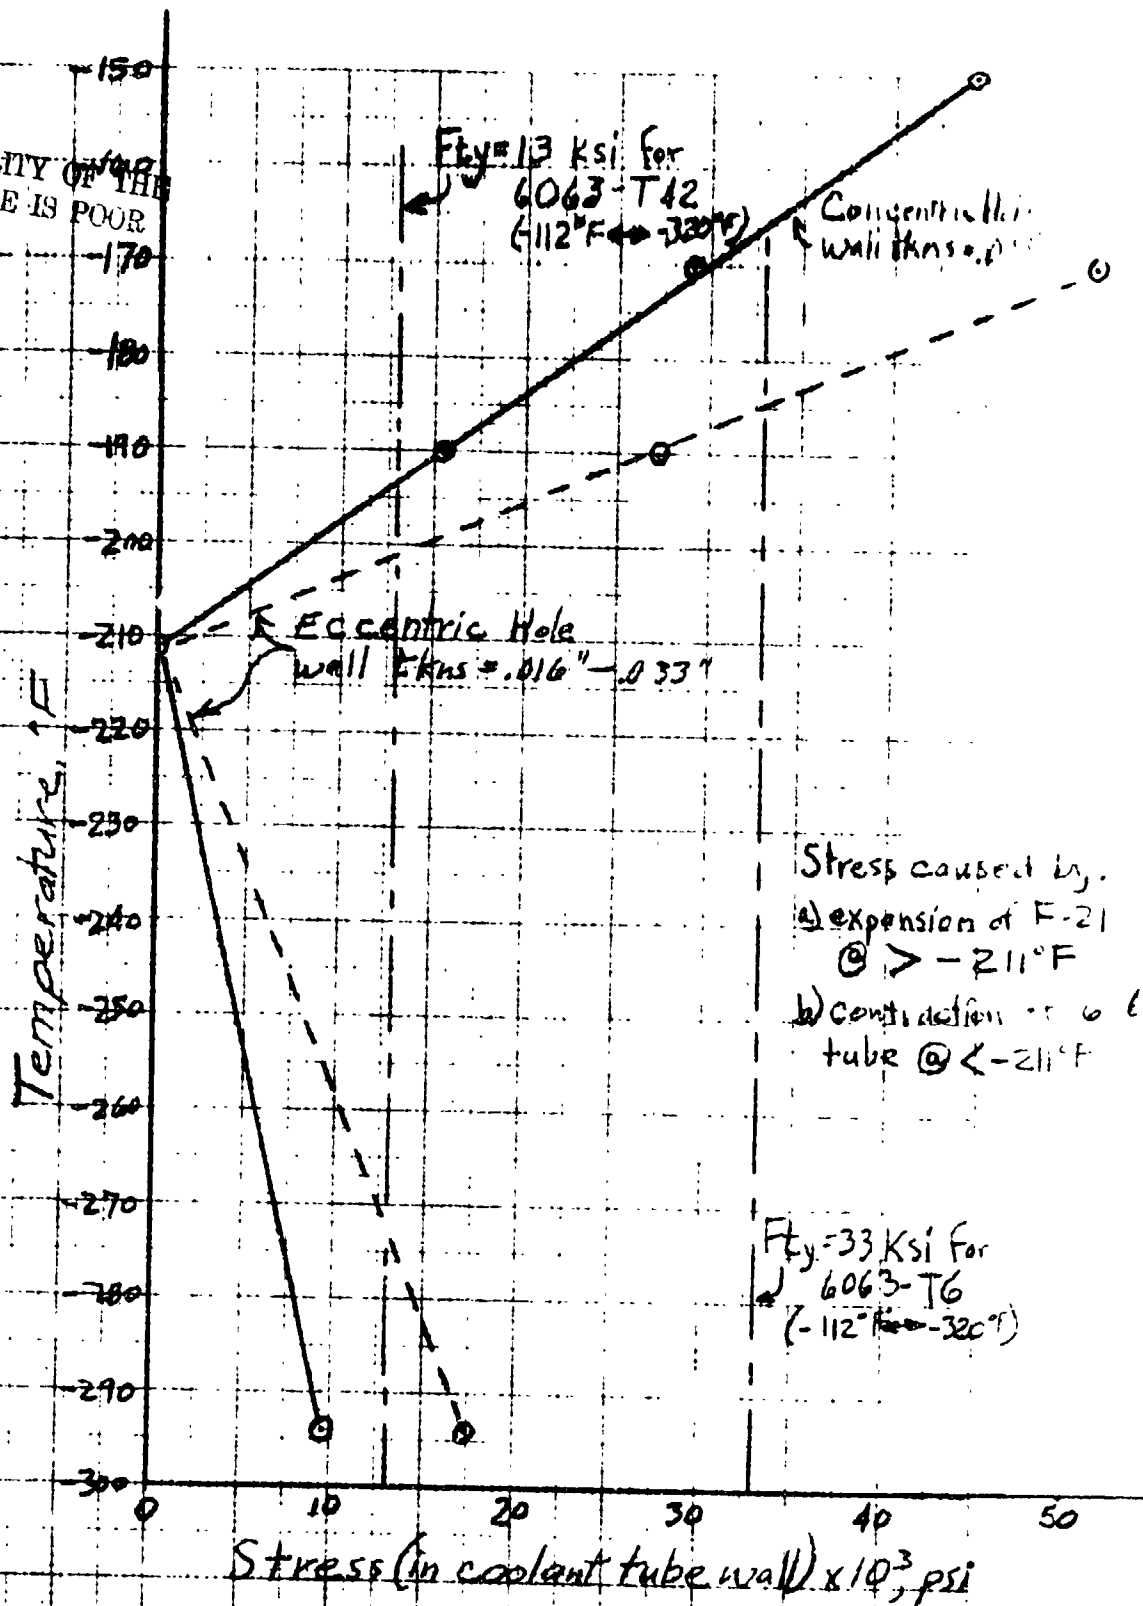 -150
ITY OF THE
E IS POOR
Fty=13 Ksi for
6063-T42
(-112°F↔-320°F)
wall tkns
-170
-180
-190
-200
-210
Eccentric Hole
wall tkns = .016"-.033"
-220
-230
-240
-250
-260
-270
-280
-290
-300
Temperature, °F
Stress caused by
a) expansion of F-21
@ > -211°F
b) contraction
tube @ < -211°F
Fty=33 Ksi for
6063-T6
(-112°F↔-320°F)
0 10 20 30 40 50
Stress (in coolant tube wall) x10³, psi